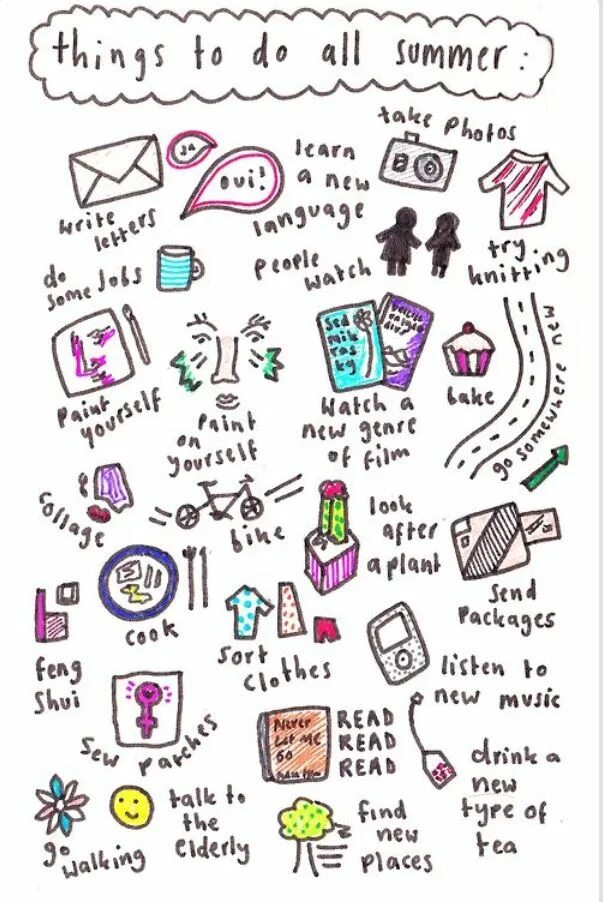 things to do all summer:
take photos
ja
oui!
learn
a new
language
write
letters
people
watch
try
knitting
do
some jobs
paint
yourself
paint
on
yourself
sed
mik
ras
ky
watch a
new genre
of film
bake
go somewhere new
collage
bike
look
after
a plant
send
packages
cook
feng
shui
sort
clothes
listen to
new music
sew patches
Never
Let Me
Go
READ
READ
READ
drink a
new
type of
tea
go
walking
talk to
the
elderly
find
new
places